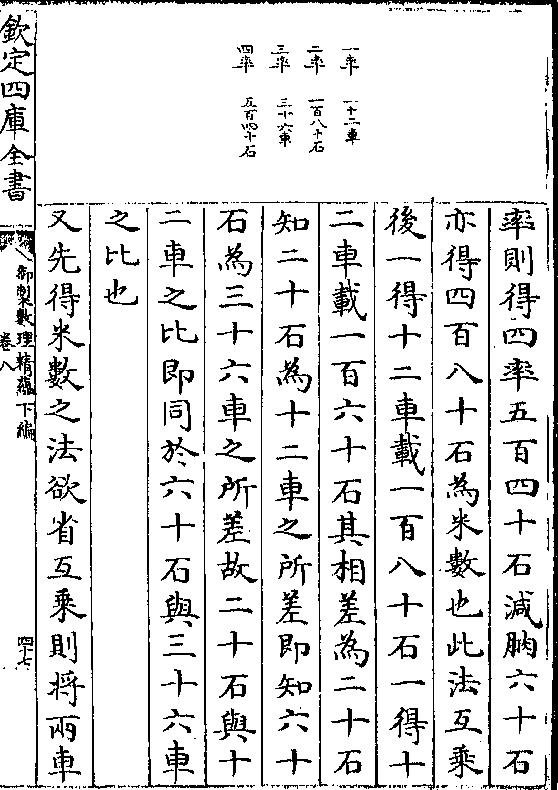 一率　一十二車
二率　一百八十石
三率　三十六車
四率　五百四十石
率則得四率五百四十石減朒六十石
亦得四百八十石為米數也此法互乘
後一得十二車載一百八十石一得十
二車載一百六十石其相差為二十石
知二十石為十二車之所差即知六十
石為三十六車之所差故二十石與十
二車之比即同於六十石與三十六車
之比也
又先得米數之法欲省互乘則將兩車
欽定四庫全書
御製數理精蘊下編
卷八
四十七